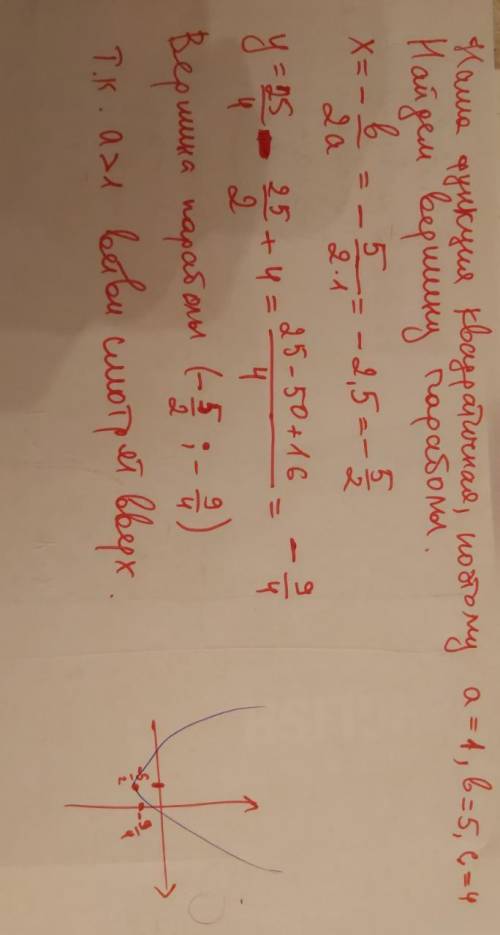 Наша функция квадратичная, поэтому a=1, b=5, c=4
Найдем вершину параболы.
x = - b/2a = - 5/2·1 = -2,5 = - 5/2
y = 25/4 - 25/2 + 4 = 25-50+16/4 = - 9/4
Вершина параболы (- 5/2 ; - 9/4)
Т.к. a>1 ветви смотрят вверх.
-5/2
-9/4